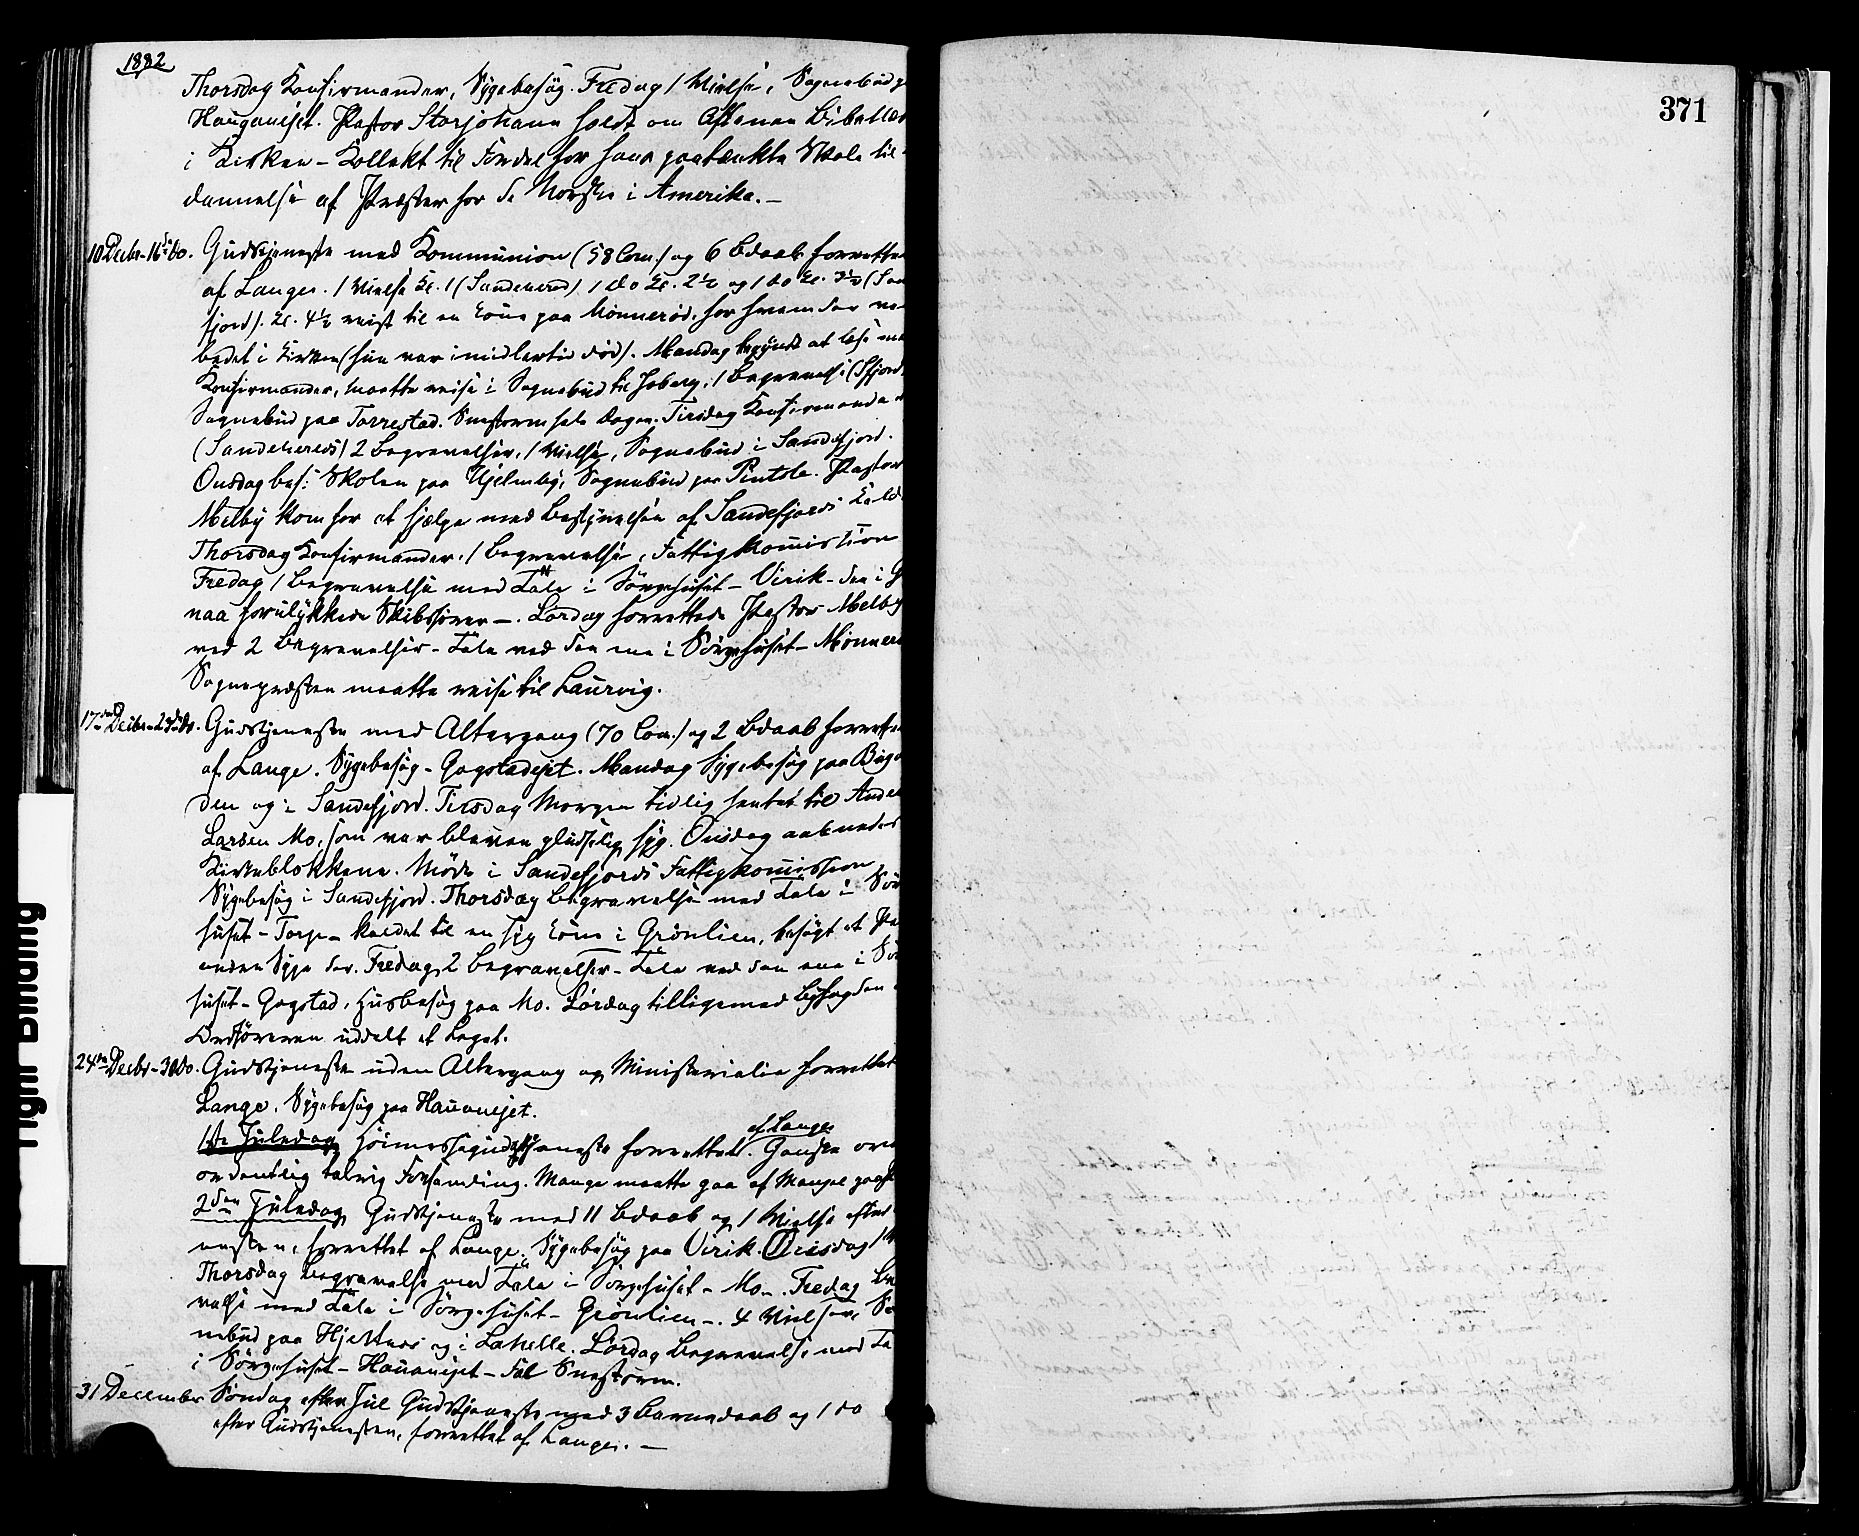 1882
371
Thorsdag Konfirmander, Sygebesøg. Fredag 1 Vielse, Sognebud
Hauganejet. Pastor Storjohann holdt om Aftenen Bibellæs
i Kirken – Kollekt til Fordel for hans paatænkte Skole til
dannelse af Præster for de Norske i Amerika. –
10 Decbr – 16de do. Gudstjeneste med Kommunion (58 Com.) og 6 Bdaab forrettet
af Lange. 1 Vielse Kl. 1 (Sandeherred) 1 do Kl. 2½ og 1 do Kl. 3½ (San
fjord). Kl. 4½ reist til en Kone paa Mønnerød, for hvem der var
bedet i Kirken (hun var imidlertid død). Mandag begyndt at læse med
Konfirmander, maatte reise i Sognebud til 1 Begravelse (Sfjord)
Sognebud paa Torrestad. Snestorm hele Dagen. Tirsdag Konfirmander
(Sandeherred) 2 Begravelser, 1 Vielse, Sognebud i Sandefjord.
Onsdag bes: Skolen paa Hjelmby, Sognebud paa Pintsle. Pastor
Melby kom for at hjælpe med Bestyrelsen af Sandefjords Kald
Thorsdag Konfirmander, 1 Begravelse, Fattigkomission
Fredag 1 Begravelse med Tale i Sørgehuset – Virik – den i G
naa forulykkede Skibsfører –. Lørdag forrettede Pastor Melby
ved 2 Begravelser – Tale ved den ene i Sørgehuset – Mønnerø
Sognepræsten maatte reise til Laurvig.
17de Decbr – 23de do. Gudstjeneste med Altergang (70 Com.) og 2 Bdaab forrettet
af Lange. Sygebesøg – Gogstadejet. Mandag Sygebesøg paa
den og i Sandefjord. Tirsdag Morgen tidlig hentet til Ander
Larsen Mo, som var bleven pludselig syg. Onsdag aabnedes
Kirkeblokkene. Møde i Sandefjords Fattigkomission
Sygebesøg i Sandefjord. Thorsdag Begravelse med Tale i Sør
huset – Torp – kaldet til en syg Kone i Grønlien, besøgt et Par
anden Syge der. Fredag 2 Begravelser – Tale ved den ene i Sør
huset – Gogstad. Husbesøg paa Mo. Lørdag tilligemed Byfogden
Ordføreren uddelt et Legat.
24de Decbr – 30 do. Gudstjeneste uden Altergang og Ministerialia forrettet
Lange. Sygebesøg paa Hauanejet.
af Lange
1ste Juledag Høimessegudstjeneste forrettet. Ganske over
ordentlig talrig Forsamling. Mange maatte gaa af Mangel paa
2den Juledag Gudstjeneste med 11 Bdaab og 1 Vielse efter
nesten, forrettet af Lange. Sygebesøg paa Virik. Onsdag 1
Thorsdag Begravelse med Tale i Sørgehuset – Mo –. Fredag Be
velse med Tale i Sørgehuset – Grønlien –. 4 Vielser, So
nebud paa Hjertnes og i Lahelle. Lørdag Begravelse med Ta
i Sørgehuset – Hauanejet – Fæl Snestorm.
31 December Søndag efter Jul Gudstjeneste med 3 Barnedaab og 1 do
efter Gudstjenesten, forrettet af Lange. –
Tight Binding